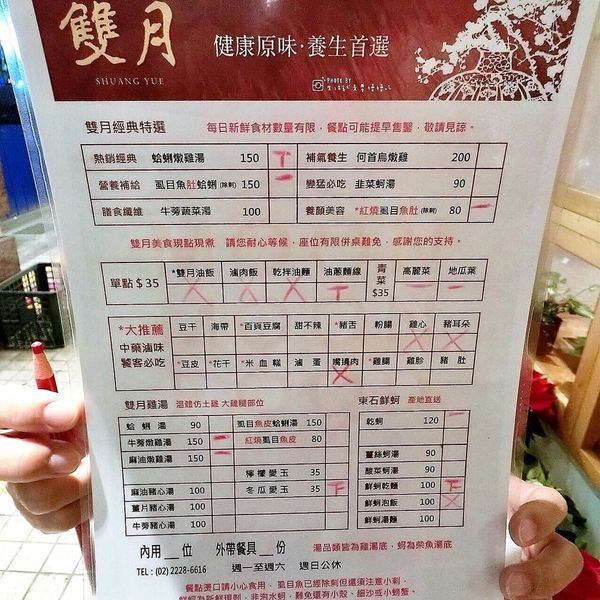 雙月
SHUANG YUE
健康原味·養生首選
PHOTO BY
雙月經典特選 每日新鮮食材數量有限，餐點可能提早售罄，敬請見諒。
熱銷經典 蛤蜊燉雞湯 150 補氣養生 何首烏燉雞 200
營養補給 虱目魚肚蛤蜊(除刺) 150 變猛必吃 韭菜蚵湯 90
膳食纖維 牛蒡蔬菜湯 100 養顏美容 *紅燒虱目魚肚(除刺) 80
雙月美食現點現煮 請您耐心等候，座位有限併桌難免，感謝您的支持。
單點$35 *雙月油飯 滷肉飯 *乾拌油麵 油蔥麵線 青菜$35 高麗菜 地瓜葉
*大推薦 豆干 海帶 *百頁豆腐 甜不辣 *豬舌 粉腸 雞心 豬耳朵
中藥滷味
饕客必吃 *豆皮 *花干 *米血糕 滷蛋 嘴邊肉 *雞腸 雞胗 豬肚
雙月雞湯 溫體仿土雞 大雞腿部位 東石鮮蚵 產地直送
蛤蜊湯 90 虱目魚皮蛤蜊湯 150 乾蚵 120
牛蒡燉雞湯 150 紅燒虱目魚皮 80
麻油燉雞湯 150 薑絲蚵湯 90
檸檬愛玉 35 酸菜蚵湯 90
麻油豬心湯 100 冬瓜愛玉 35 鮮蚵乾麵 100
薑片豬心湯 100 鮮蚵泡飯 100
牛蒡豬心湯 100 鮮蚵湯麵 100
內用 __位 外帶餐具 __份 湯品類皆為雞湯底，蚵為柴魚湯底
TEL : (02) 2228-6616 週一至週六 週日公休
餐點燙口請小心食用，虱目魚已經除刺但還須注意小刺，
鮮蚵為新鮮現剝，非泡水蚵，難免還有小殼、細沙或小螃蟹。